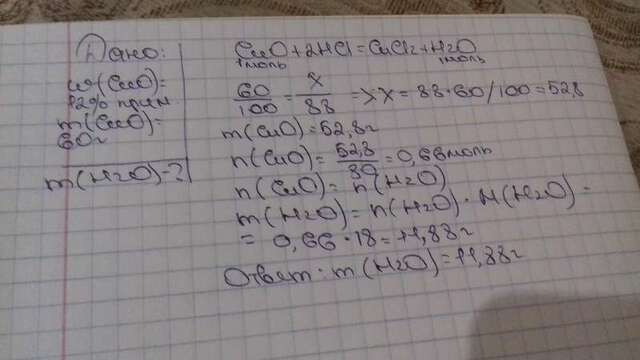 Дано:
w(CuO)=
12% прим
m(CuO)=
60г
m(H2O)-?
CuO+2HCl=CuCl2+H2O
1моль 1моль
60/100 = x/88 => x = 88·60/100 = 52,8
m(CuO)=52,8г
n(CuO)= 52,8/80 =0,66моль
n(CuO)= n(H2O)
m(H2O)= n(H2O)·M(H2O) =
= 0,66·18=11,88г
Ответ: m(H2O)=11,88г